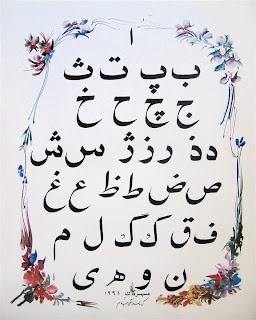 ا
ب پ ت ث
ج چ ح خ
د ذ ر ز ژ س ش
ص ض ط ظ ع غ
ف ق ک گ ل م
ن و ه ی
۱۹۹۴